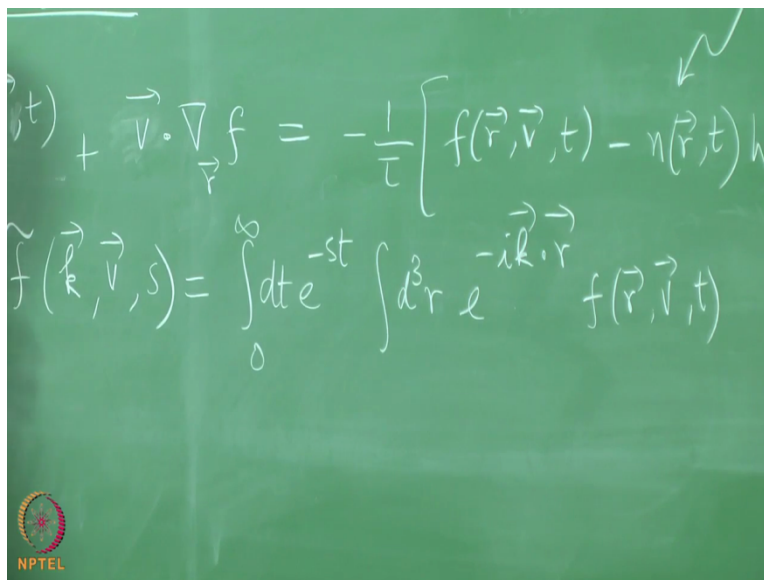 ,t) + \vec{v} · ∇_{\vec{r}} f = - 1/τ [ f(\vec{r}, \vec{v}, t) - n(\vec{r}, t) h
\tilde{f}(\vec{k}, \vec{v}, s) = ∫_0^∞ dt e^{-st} ∫ d^3r e^{-i\vec{k}·\vec{r}} f(\vec{r}, \vec{v}, t)
NPTEL